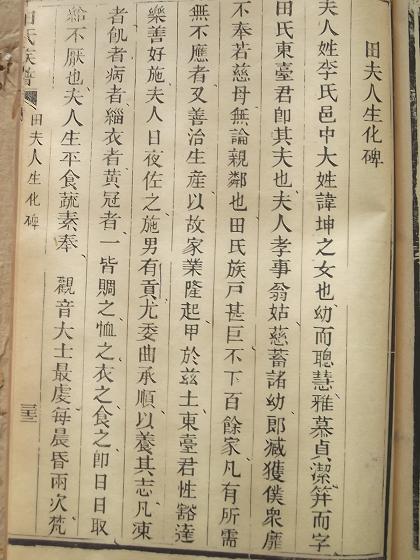 田夫人生化碑
夫人姓李氏邑中大姓諱坤之女也幼而聰慧雅慕貞潔笄而字
田氏東臺君卽其夫也夫人孝事翁姑慈蓄諸幼郎臧獲僕衆靡
不奉若慈母無論親鄰也田氏族戸甚巨不下百餘家凡有所需
無不應者又善治生産以故家業隆起甲於兹土東臺君性豁達
樂善好施夫人日夜佐之施男有貢尤委曲承順以養其志凡凍
者飢者病者緇衣者黃冠者一皆賙之恤之衣之食之卽日日取
給不厭也夫人生平食蔬素奉 觀音大士最虔每晨昏兩次梵
田氏族譜 田夫人生化碑 三三